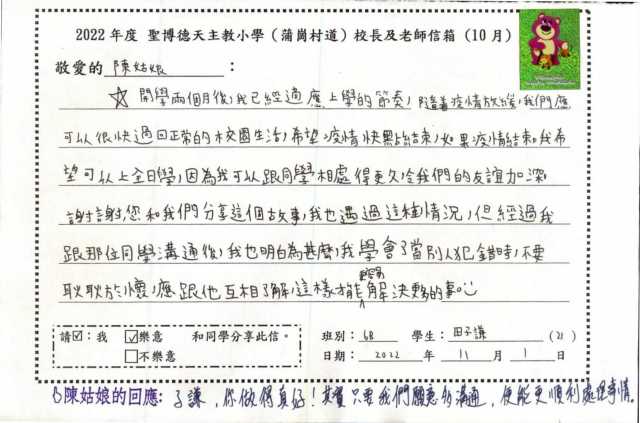 2022 年度 聖博德天主教小學（蒲崗村道）校長及老師信箱（10 月）
敬愛的 陳姑娘：
☆ 開學兩個月後，我已經適應上學的節奏，隨著疫情放緩，我們應
可以很快過回正常的校園生活，希望疫情快點結束，如果疫情結束我希
望可以上全日學，因為我可以跟同學相處得更久令我們的友誼加深
謝謝您和我們分享這個故事，我也遇過這種情況，但經過我
跟那位同學溝通後，我也明白為甚麼，我學會了當別人犯錯時，不要
耿耿於懷，應跟他互相了解，這樣才能更容易解決夠的事
請☑：我 ☑樂意 和同學分享此信。 班別：6B 學生：田子謙 (21)
□不樂意 日期：2022 年 11 月 1 日
陳姑娘的回應：子謙，你做得真好！其實只要我們願意多溝通，便能更順利處理事情。